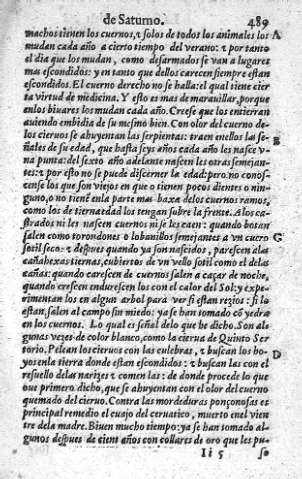 de Saturno. 489
machos tienen los cuernos, τ solos de todos los animales los A
mudan cada año a cierto tiempo del verano: τ por tanto
el dia que los mudan, como desarmados se van a lugares
mas escondidos: y en tanto que dellos carecen siempre estan
escondidos. El cuerno derecho no se halla: el qual tiene cier
ta virtud de medicina. Y esto es mas de marauillar, porque
en los biuares los mudan cada año. Creese que los entierran
auiendo embidia de su mesmo bien. Con olor del cuerno de
los cieruos se ahuyentan las serpientas: traen en ellos las se-
ñales de su edad, que hasta seys años cada año les nasce v B
na punta: del sexto año adelante nascen les otras semejan-
tes: τ por esto no se puede discerner la edad: pero no conos-
cense los que son viejos en que o tienen pocos dientes o nin-
guno, o no tienē en la parte mas baxa de los cuernos ramos,
como los de tierna edad los tengan sobre la frente. A los ca-
strados ni les nascen cuernos ni se les caen: quando botan
salen como torondones o lobanillos semejantes a vn cuero C
sotil seco: τ despues quando ya son nascidos, parescen a las
cañahexas tiernas, cubiertos de vn vello sotil como el de las
cañas: quando carescen de cuernos salen a caçar de noche,
quando crescen endurescen los con el calor del Sol: y expe-
rimentan los en algun arbol para ver si estan rezios: si lo
estan, salen al campo sin miedo: ya se han tomado cō yedra
en los cuernos. Lo qual es señal de lo que he dicho. Son al-
gunas vezes de color blanco, como la cierua de Quinto Ser
torio, Pelean los cieruos con las culebras, τ buscan los ho-
yos en la tierra donde estan escondidas: τ buscan las con el D
resuello de la nariz: τ comen las: de donde procede lo que
oue primero dicho, que se ahuyentan con el olor del cuerno
quemado del cieruo. Contra las mordeduras ponçoñosas es
principal remedio el cuajo del ceruatico, muerto en el vien
tre de la madre. Biuen mucho tiempo: ya se han tomado al-
gunos despues de cient años con collares de oro que les pu-
Ii 5 so